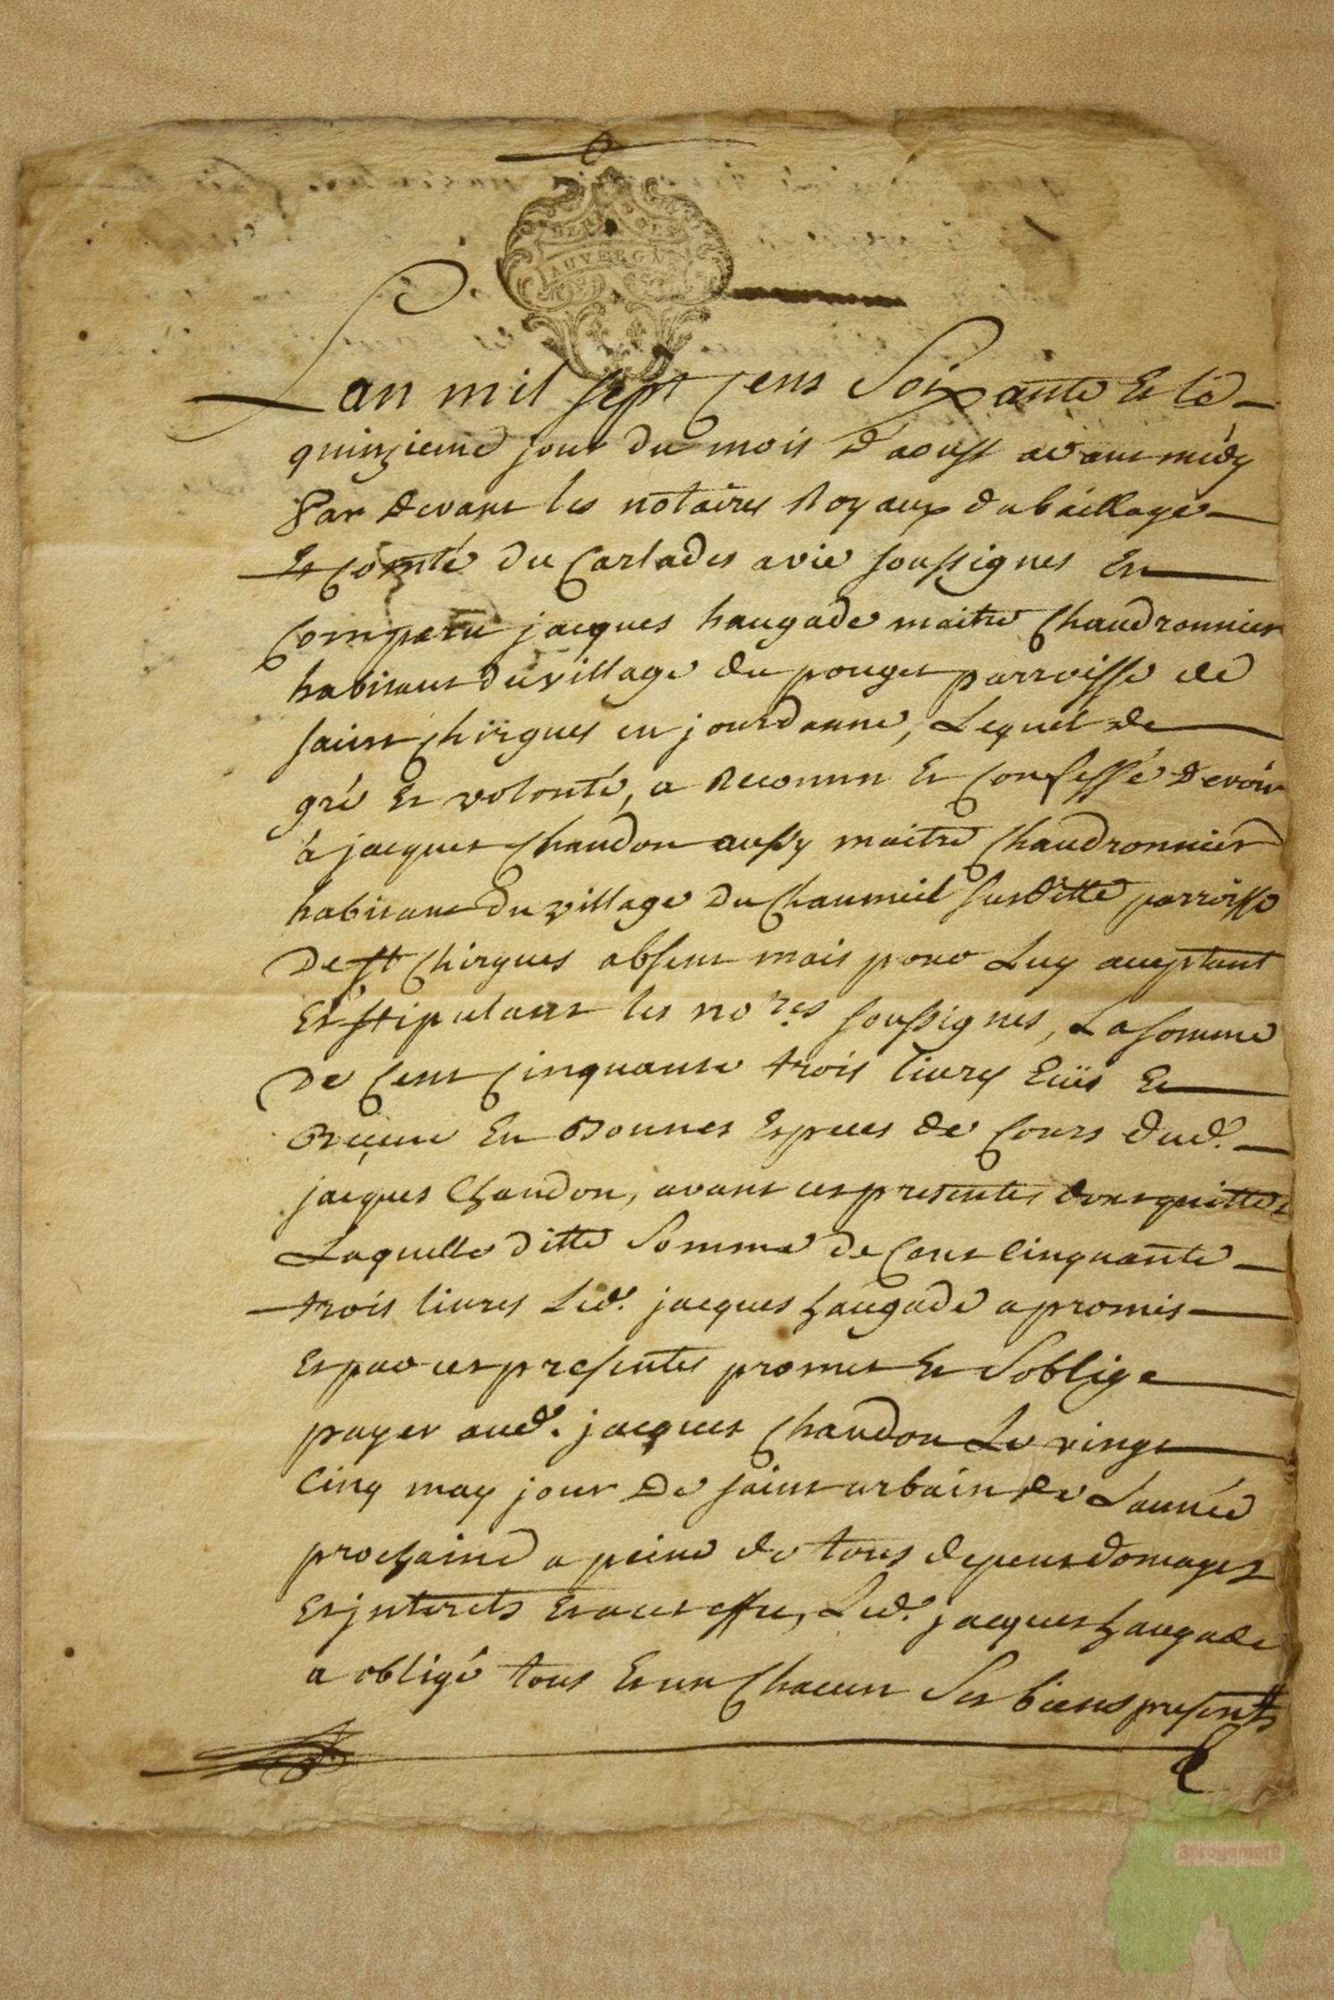 AUVERGNE
Lan mil sept Cens Soixante Et le
quinzieme jour du mois d'aoust avant midy
Par devant les notaires Royaux du bailliage
Et Comté du Carladés a vic soussignes En
Comparu jacques haugade maitre Chaudronnier
habitant du village du pouget parroisse de
saint Chirgues en jourdanne, Lequel de
gré Et volonté, a Reconnu Et Confessé devoir
à jacques Chaudon aussy maitre Chaudronnier
habitant du village du Chaumeil susditte parroisse
De st Chirgues absent mais pour Luy acceptant
Et stipulant les no.res soussignes, La somme
De Cent Cinquante trois livres Eüs Et
Reçeue En Bonnes Especes de Cours dud.
jacques Chaudon, avant ces presentes dont quitte
Laquelle ditte Somme de Cent Cinquante
trois livres Led. jacques haugade a promis
Et par ces presentes promet Et Soblige
payer aud. jacques Chaudon Le vingt
Cinq may jour De saint urbain de Lannée
prochaine a peine de tous depens domages
Et jnterets Et a cet effet, Led. jacques haugade
a obligé tous Et un Chacun Ses biens presents
aprogemere